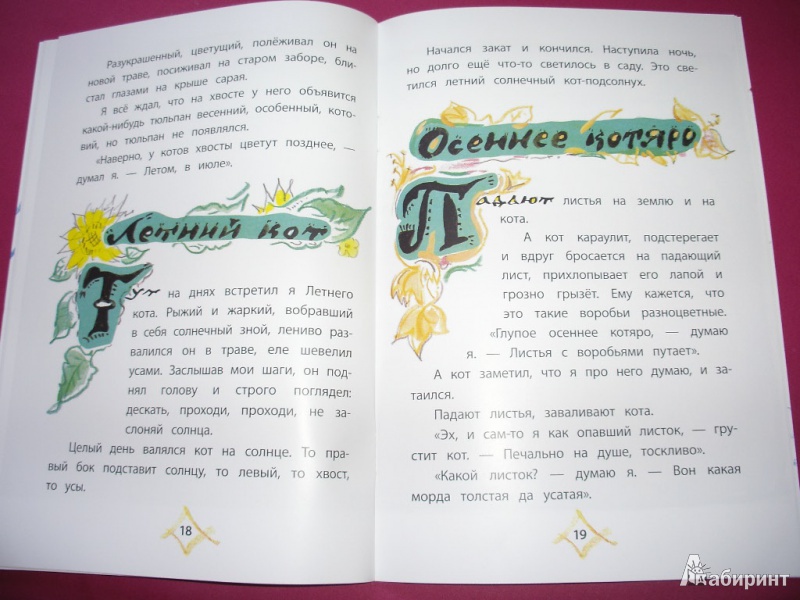 Разукрашенный, цветущий, полёживал он на
новой траве, посиживал на старом заборе, бли-
стал глазами на крыше сарая.
Я всё ждал, что на хвосте у него объявится
какой-нибудь тюльпан весенний, особенный, кото-
вий, но тюльпан не появлялся.
«Наверно, у котов хвосты цветут позднее, —
думал я. — Летом, в июле».
Летний кот
Тут на днях встретил я Летнего
кота. Рыжий и жаркий, вобравший
в себя солнечный зной, лениво раз-
валился он в траве, еле шевелил
усами. Заслышав мои шаги, он под-
нял голову и строго поглядел:
дескать, проходи, проходи, не за-
слоняй солнца.
Целый день валялся кот на солнце. То пра-
вый бок подставит солнцу, то левый, то хвост,
то усы.
18
Начался закат и кончился. Наступила ночь,
но долго ещё что-то светилось в саду. Это све-
тился летний солнечный кот-подсолнух.
Осеннее котяро
Падают листья на землю и на
кота.
А кот караулит, подстерегает
и вдруг бросается на падающий
лист, прихлопывает его лапой и
грозно грызёт. Ему кажется, что
это такие воробьи разноцветные.
«Глупое осеннее котяро, — думаю
я. — Листья с воробьями путает».
А кот заметил, что я про него думаю, и за-
таился.
Падают листья, заваливают кота.
«Эх, и сам-то я как опавший листок, — гру-
стит кот. — Печально на душе, тоскливо».
«Какой листок? — думаю я. — Вон какая
морда толстая да усатая».
19
Лабиринт